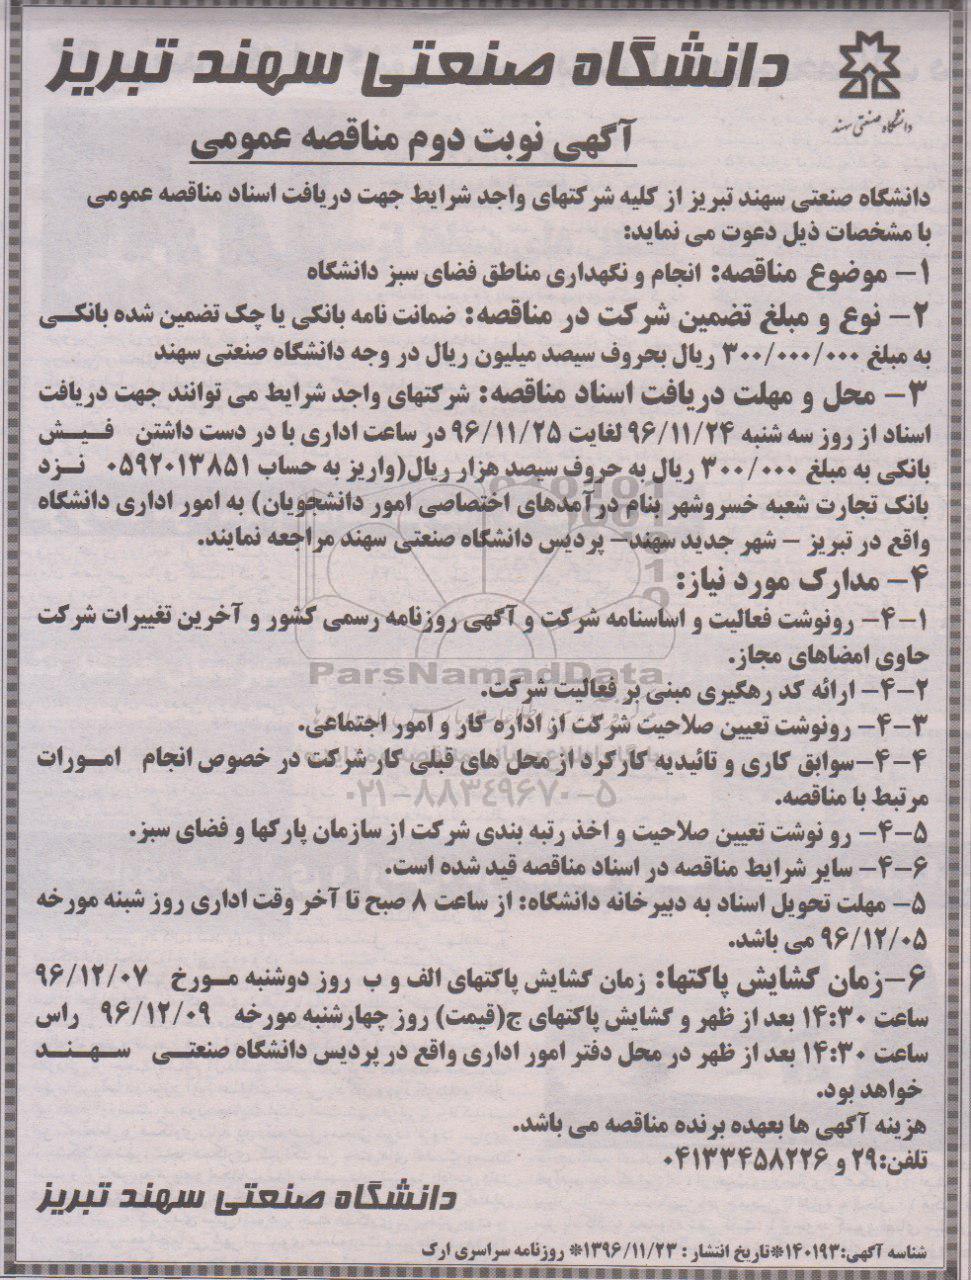 دانشگاه صنعتی سهند تبریز
دانشگاه صنعتی سهند
آگهی نوبت دوم مناقصه عمومی
دانشگاه صنعتی سهند تبریز از کلیه شرکتهای واجد شرایط جهت دریافت اسناد مناقصه عمومی
با مشخصات ذیل دعوت می نماید:
۱- موضوع مناقصه: انجام و نگهداری مناطق فضای سبز دانشگاه
۲- نوع و مبلغ تضمین شرکت در مناقصه: ضمانت نامه بانکی یا چک تضمین شده بانکی
به مبلغ ۳۰۰/۰۰۰/۰۰۰ ریال بحروف سیصد میلیون ریال در وجه دانشگاه صنعتی سهند
۳- محل و مهلت دریافت اسناد مناقصه: شرکتهای واجد شرایط می توانند جهت دریافت
اسناد از روز سه شنبه ۹۶/۱۱/۲۴ لغایت ۹۶/۱۱/۲۵ در ساعت اداری با در دست داشتن فیش
بانکی به مبلغ ۳۰۰/۰۰۰ ریال به حروف سیصد هزار ریال(واریز به حساب ۰۵۹۲۰۱۳۸۵۱ نزد
بانک تجارت شعبه خسروشهر بنام درآمدهای اختصاصی امور دانشجویان) به امور اداری دانشگاه
واقع در تبریز - شهر جدید سهند- پردیس دانشگاه صنعتی سهند مراجعه نمایند.
۴- مدارک مورد نیاز:
۴-۱- رونوشت فعالیت و اساسنامه شرکت و آگهی روزنامه رسمی کشور و آخرین تغییرات شرکت
حاوی امضاهای مجاز.
ParsNamadData
۴-۲- ارائه کد رهگیری مبنی بر فعالیت شرکت.
۴-۳- رونوشت تعیین صلاحیت شرکت از اداره کار و امور اجتماعی.
۴-۴-سوابق کاری و تائیدیه کارکرد از محل های قبلی کار شرکت در خصوص انجام امورات
مرتبط با مناقصه.
۰۲۱-۸۸۳۴۹۶۷۰-۵
۴-۵- رو نوشت تعیین صلاحیت و اخذ رتبه بندی شرکت از سازمان پارکها و فضای سبز.
۴-۶- سایر شرایط مناقصه در اسناد مناقصه قید شده است.
۵- مهلت تحویل اسناد به دبیرخانه دانشگاه: از ساعت ۸ صبح تا آخر وقت اداری روز شنبه مورخه
۹۶/۱۲/۰۵ می باشد.
۶-زمان گشایش پاکتها: زمان گشایش پاکتهای الف و ب روز دوشنبه مورخ ۹۶/۱۲/۰۷
ساعت ۱۴:۳۰ بعد از ظهر و گشایش پاکتهای ج(قیمت) روز چهارشنبه مورخه ۹۶/۱۲/۰۹ راس
ساعت ۱۴:۳۰ بعد از ظهر در محل دفتر امور اداری واقع در پردیس دانشگاه صنعتی سهند
خواهد بود.
هزینه آگهی ها بعهده برنده مناقصه می باشد.
تلفن:۲۹ و ۰۴۱۳۳۴۵۸۲۲۶
دانشگاه صنعتی سهند تبریز
شناسه آگهی:۱۴۰۱۹۳*تاریخ انتشار : ۱۳۹۶/۱۱/۲۳* روزنامه سراسری ارک